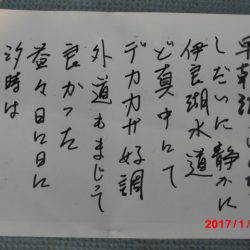 しだいに静かに
伊良湖水道
ど真中にて
デカカサ好調
外道もまじって
良かった
益々日に日に
汐時は
2017/1/